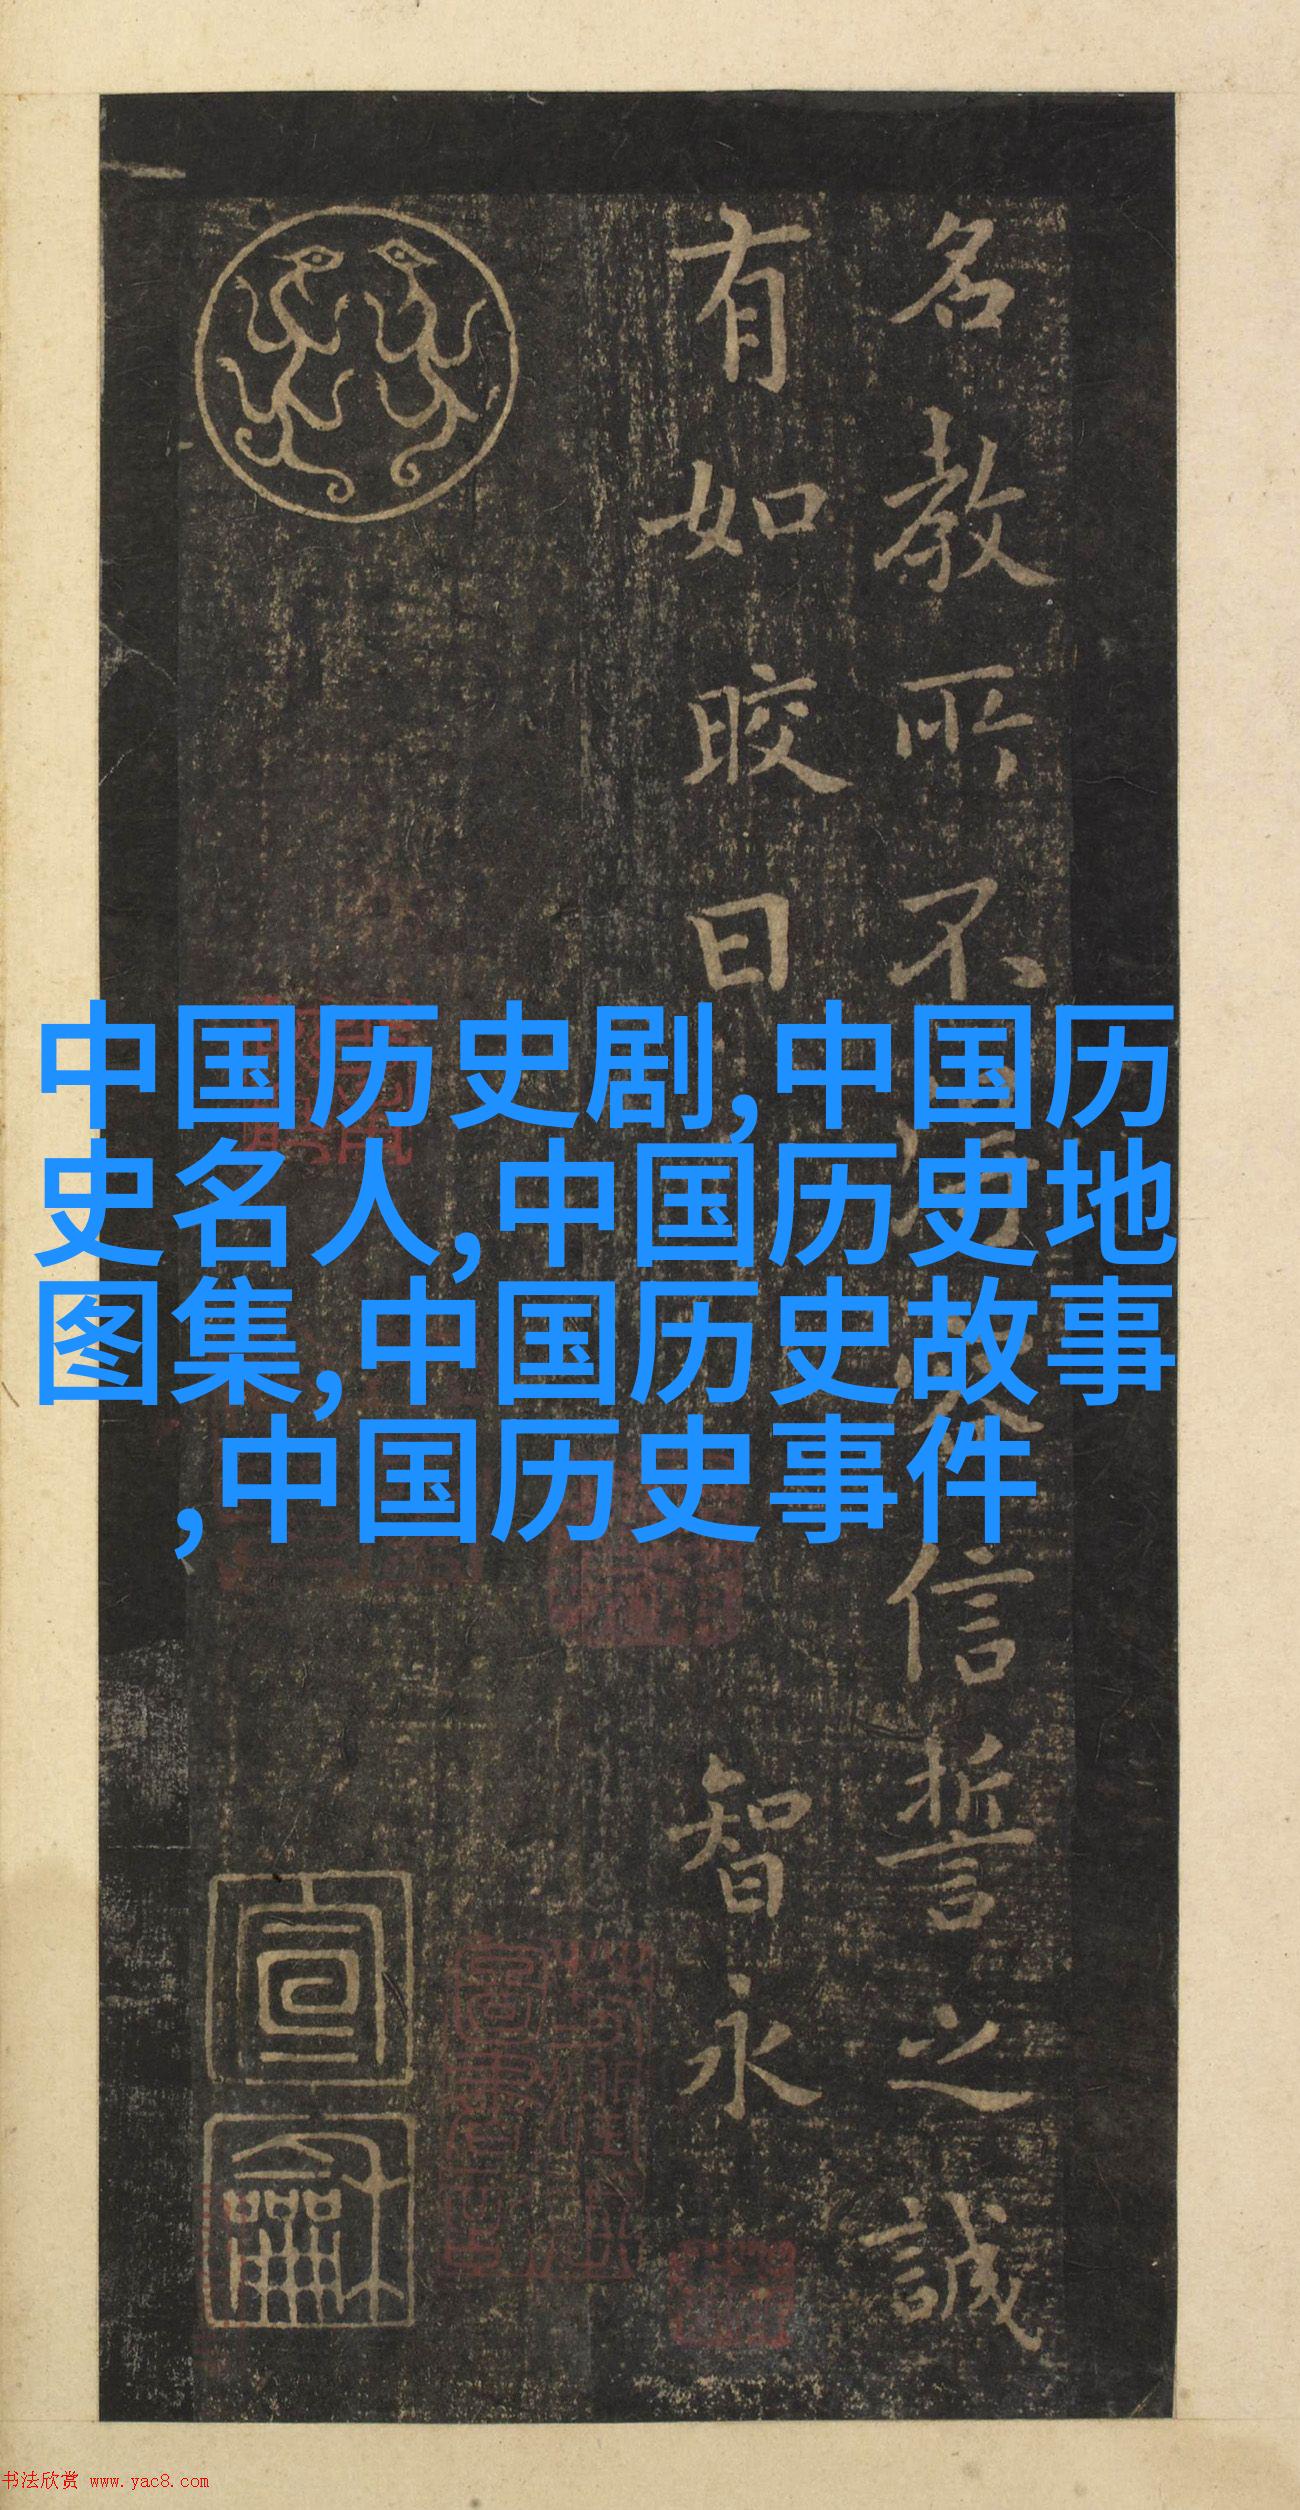 名教所不得容信誓之誠
有如皎日 智永
宣
龢
中国历史剧,中国历
史名人,中国历史地
图集,中国历史故事
,中国历史事件
书法欣赏 www.yac8.com